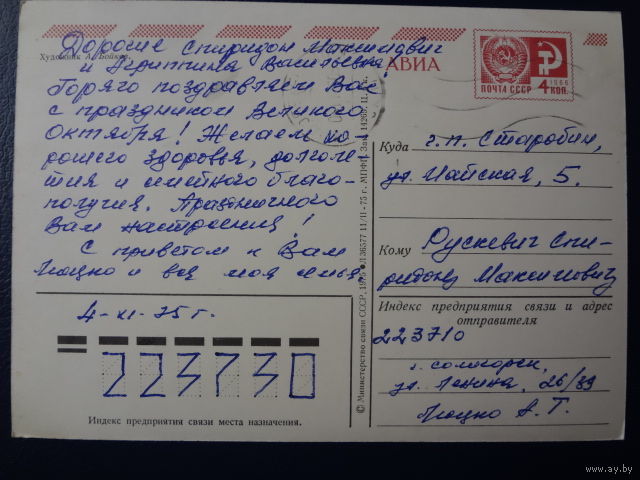 Художник А. Бойков
АВИА
ПОЧТА СССР
1966
4 КОП.
Дорогие Спиридон Максимович
и Агриппина Васильевна!
Горячо поздравляем Вас
с праздником Великого
Октября! Желаем хо
рошего здоровья, долголе
тия и семейного благо-
получия. Праздничного
Вам настроения!
С приветом к Вам
и вся моя семья
4-XI-75 г.
223730
Индекс предприятия связи места назначения.
© Министерство связи СССР, 1975
Куда г.п. Старобин,
ул. Майская, 5.
Кому Рускевич Спи-
ридону Максимовичу
Индекс предприятия связи и адрес
отправителя
223710
г. Солигорск,
ул. Ленина, 26/39
А. Т.
www.ay.by